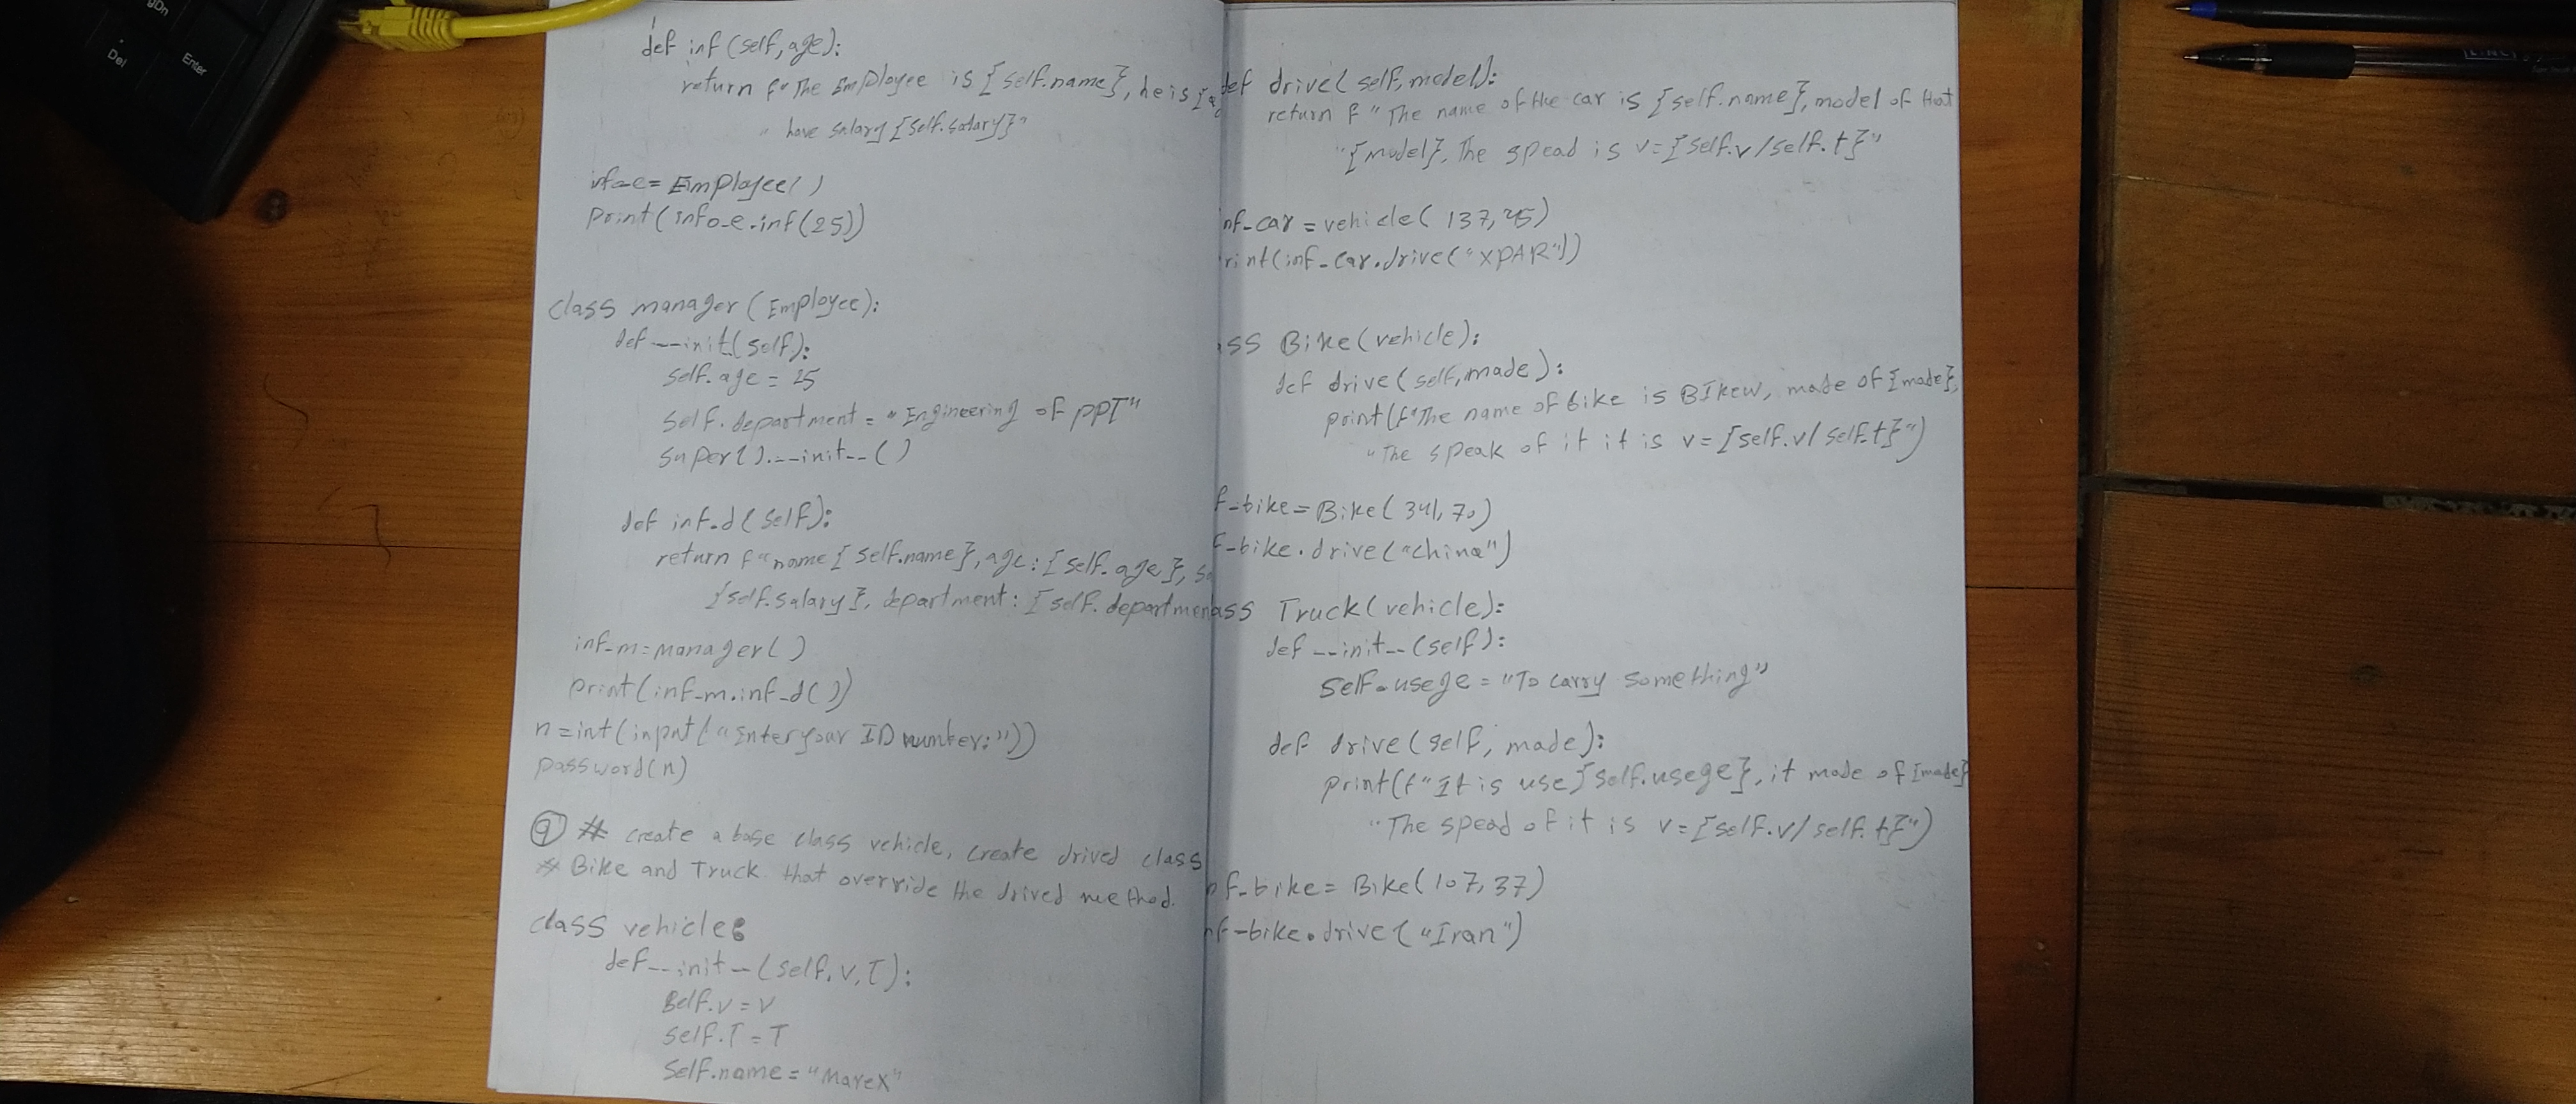 def inf(self, age):
return f"The Employee is {self.name}, he is {
"have salary {self.salary}"
inf-e = Employee()
print(inf-e.inf(25))
class manager(Employee):
def --init(self):
self.age = 25
self.department = "Engineering of PPT"
super().--init--()
def inf-d(self):
return f"name{self.name}, age: {self.age},
{self.salary}, department: {self.department
inf-m = manager()
print(inf-m.inf-d())
n = int(input("Inter your ID number:"))
password(n)
9 # create a base class vehicle, create drived class
# Bike and Truck that override the drived method.
class vehicle:
def --init--(self, v, T):
self.v = v
self.T = T
self.name = "Marex"
def drive(self, model):
return f"The name of the car is {self.name}, model of that
"{model}. The spead is v={self.v/self.t}"
inf-car = vehicle(137, 25)
rint(inf-car.drive("XPAR"))
ass Bike(vehicle):
def drive(self, made):
print(f"The name of bike is BIkew, made of {made},
"The speak of it it is v={self.v/self.t}")
f-bike = Bike(341, 70)
f-bike.drive("china")
ass Truck(vehicle):
def --init--(self):
self.usege = "To carry something"
def drive(self, made):
print(f"It is use {self.usege}, it made of {made}
"The spead of it is v={self.v/self.t}")
nf-bike = Bike(107, 37)
nf-bike.drive("Iran")
Del
gDn
Enter